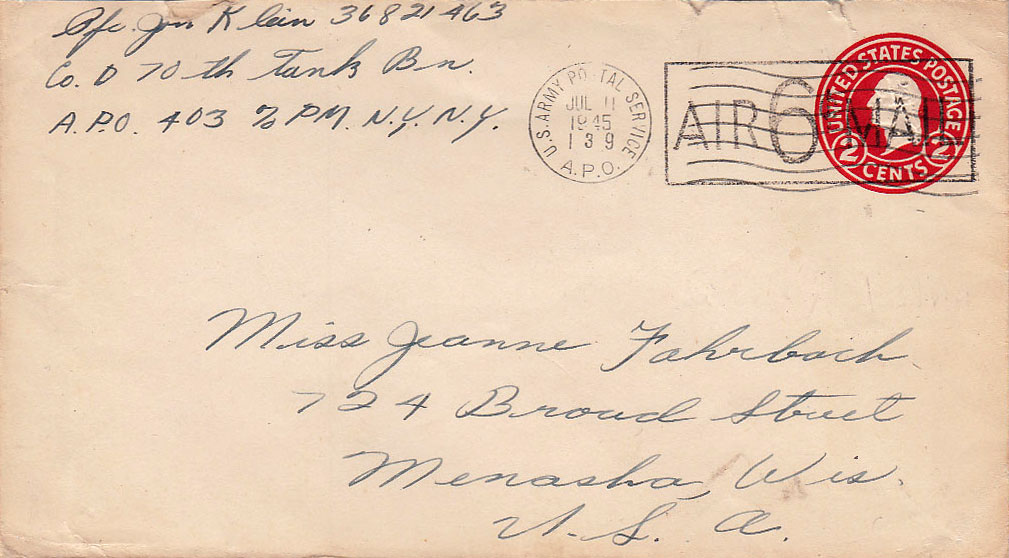 Pfc. Jon Klein 36821463
Co. D 70th Tank Bn.
A.P.O. 403 % PM. N.Y. N.Y.
U.S. ARMY POSTAL SERVICE
JUL 11
1945
1 3 9
A.P.O.
AIR 6¢ MAIL
UNITED STATES POSTAGE
2 CENTS 2
Miss Jeanne Fahrbach
724 Broad Street
Menasha, Wis.
U. S. A.